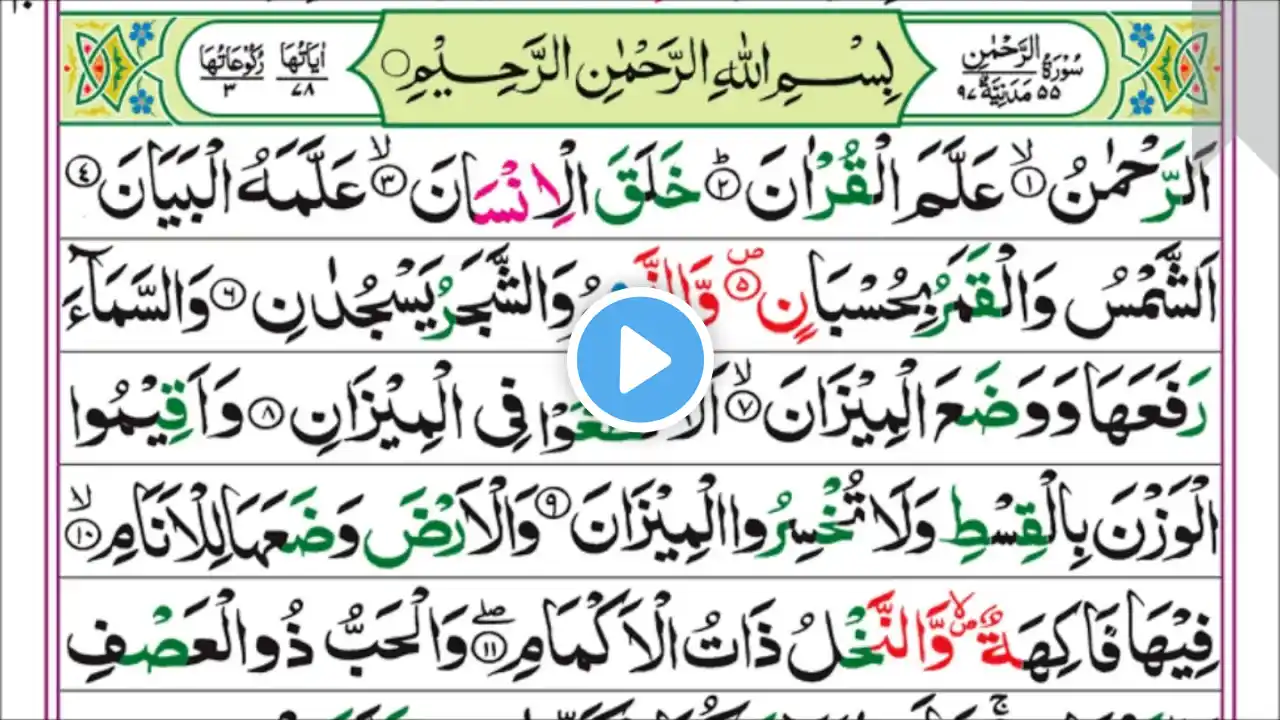 سُوْرَةُ الرَّحْمٰنِ
٥٥ مَدَنِيَّةٌ ٩٧
بِسْمِ اللهِ الرَّحْمٰنِ الرَّحِيْمِ
اٰيَاتُهَا ٧٨
رُكُوْعَاتُهَا ٣
اَلرَّحْمٰنُ ۙ﴿١﴾ عَلَّمَ الْقُرْاٰنَ ؕ﴿٢﴾ خَلَقَ الْاِنْسَانَ ۙ﴿٣﴾ عَلَّمَهُ الْبَيَانَ ﴿٤﴾
اَلشَّمْسُ وَالْقَمَرُ بِحُسْبَانٍ ۪﴿٥﴾ وَّالنَّ وَالشَّجَرُ يَسْجُدٰنِ ﴿٦﴾ وَالسَّمَآءَ
رَفَعَهَا وَوَضَعَ الْمِيْزَانَ ۙ﴿٧﴾ فِى الْمِيْزَانِ ﴿٨﴾ وَاَقِيْمُوا
الْوَزْنَ بِالْقِسْطِ وَلَا تُخْسِرُوا الْمِيْزَانَ ﴿٩﴾ وَالْاَرْضَ وَضَعَهَا لِلْاَنَامِ ۙ﴿١٠﴾
فِيْهَا فَاكِهَةٌ ۪ۙ وَّالنَّخْلُ ذَاتُ الْاَكْمَامِ ۖ﴿١١﴾ وَالْحَبُّ ذُو الْعَصْفِ